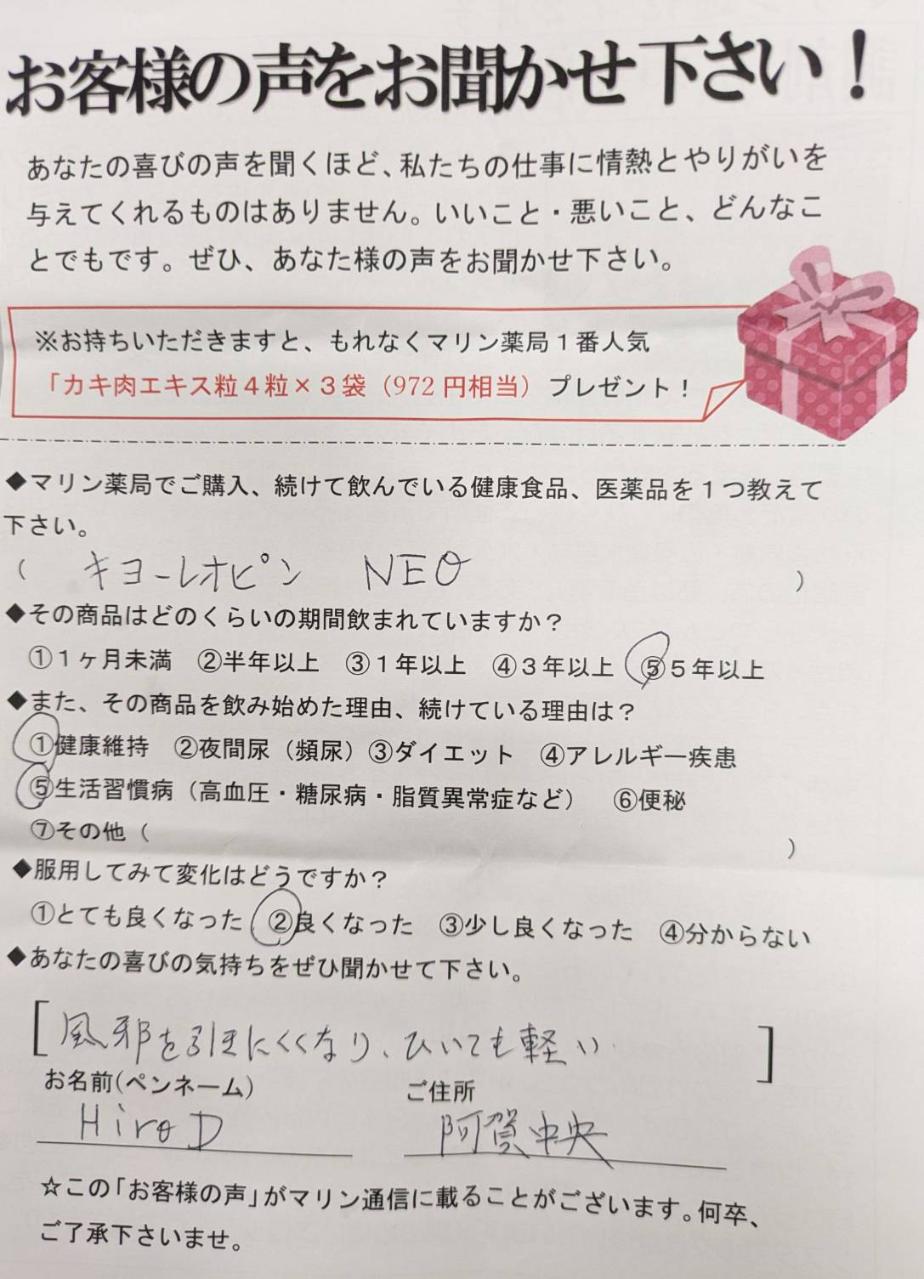 お客様の声をお聞かせ下さい！
あなたの喜びの声を聞くほど、私たちの仕事に情熱とやりがいを
与えてくれるものはありません。いいこと・悪いこと、どんなこ
とでもです。ぜひ、あなた様の声をお聞かせ下さい。
※お持ちいただきますと、もれなくマリン薬局１番人気
「カキ肉エキス粒４粒×３袋（972円相当）プレゼント！
◆マリン薬局でご購入、続けて飲んでいる健康食品、医薬品を１つ教えて
下さい。
（ キヨーレオピン NEO ）
◆その商品はどのくらいの期間飲まれていますか？
①１ヶ月未満 ②半年以上 ③１年以上 ④３年以上 ⑤５年以上
◆また、その商品を飲み始めた理由、続けている理由は？
①健康維持 ②夜間尿（頻尿）③ダイエット ④アレルギー疾患
⑤生活習慣病（高血圧・糖尿病・脂質異常症など） ⑥便秘
⑦その他（ ）
◆服用してみて変化はどうですか？
①とても良くなった ②良くなった ③少し良くなった ④分からない
◆あなたの喜びの気持ちをぜひ聞かせて下さい。
[ 風邪を引きにくくなり、ひいても軽い ]
お名前(ペンネーム) ご住所
Hiro D 阿賀中央
☆この「お客様の声」がマリン通信に載ることがございます。何卒、
ご了承下さいませ。